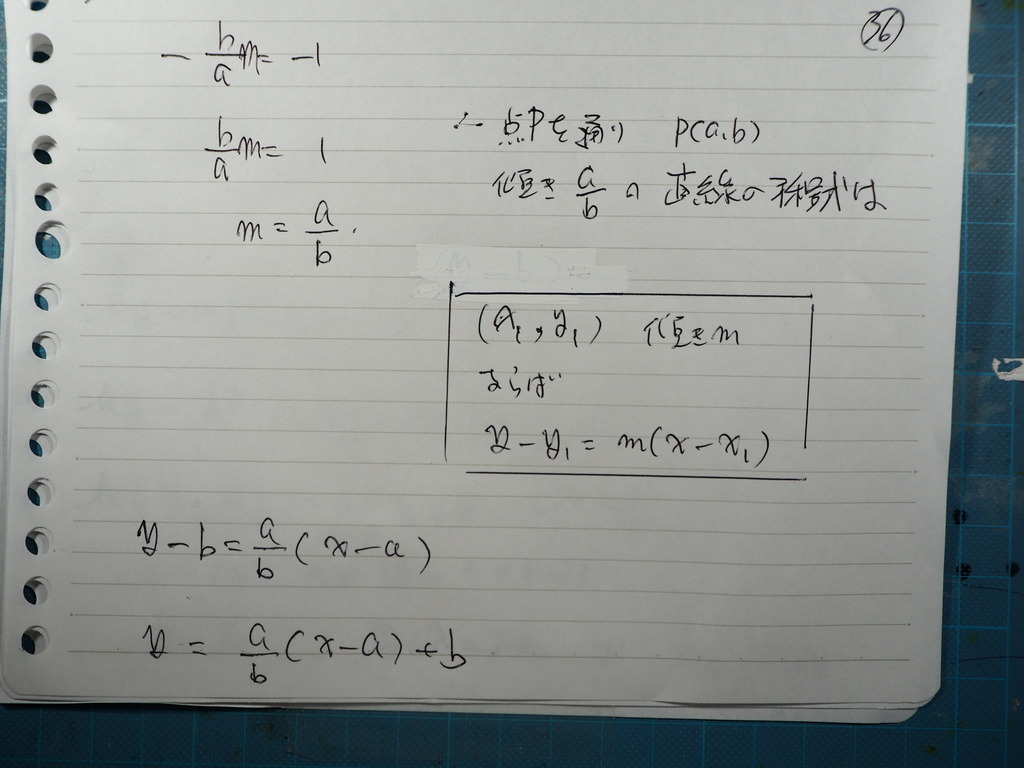 ㊱
- b/a m = -1
b/a m = 1
m = a/b.
∴ 点Pを通り P(a,b)
傾き a/b の 直線の方程式は
(x₁, y₁) 傾き m
ならば
y - y₁ = m(x - x₁)
y - b = a/b (x - a)
y = a/b (x - a) + b